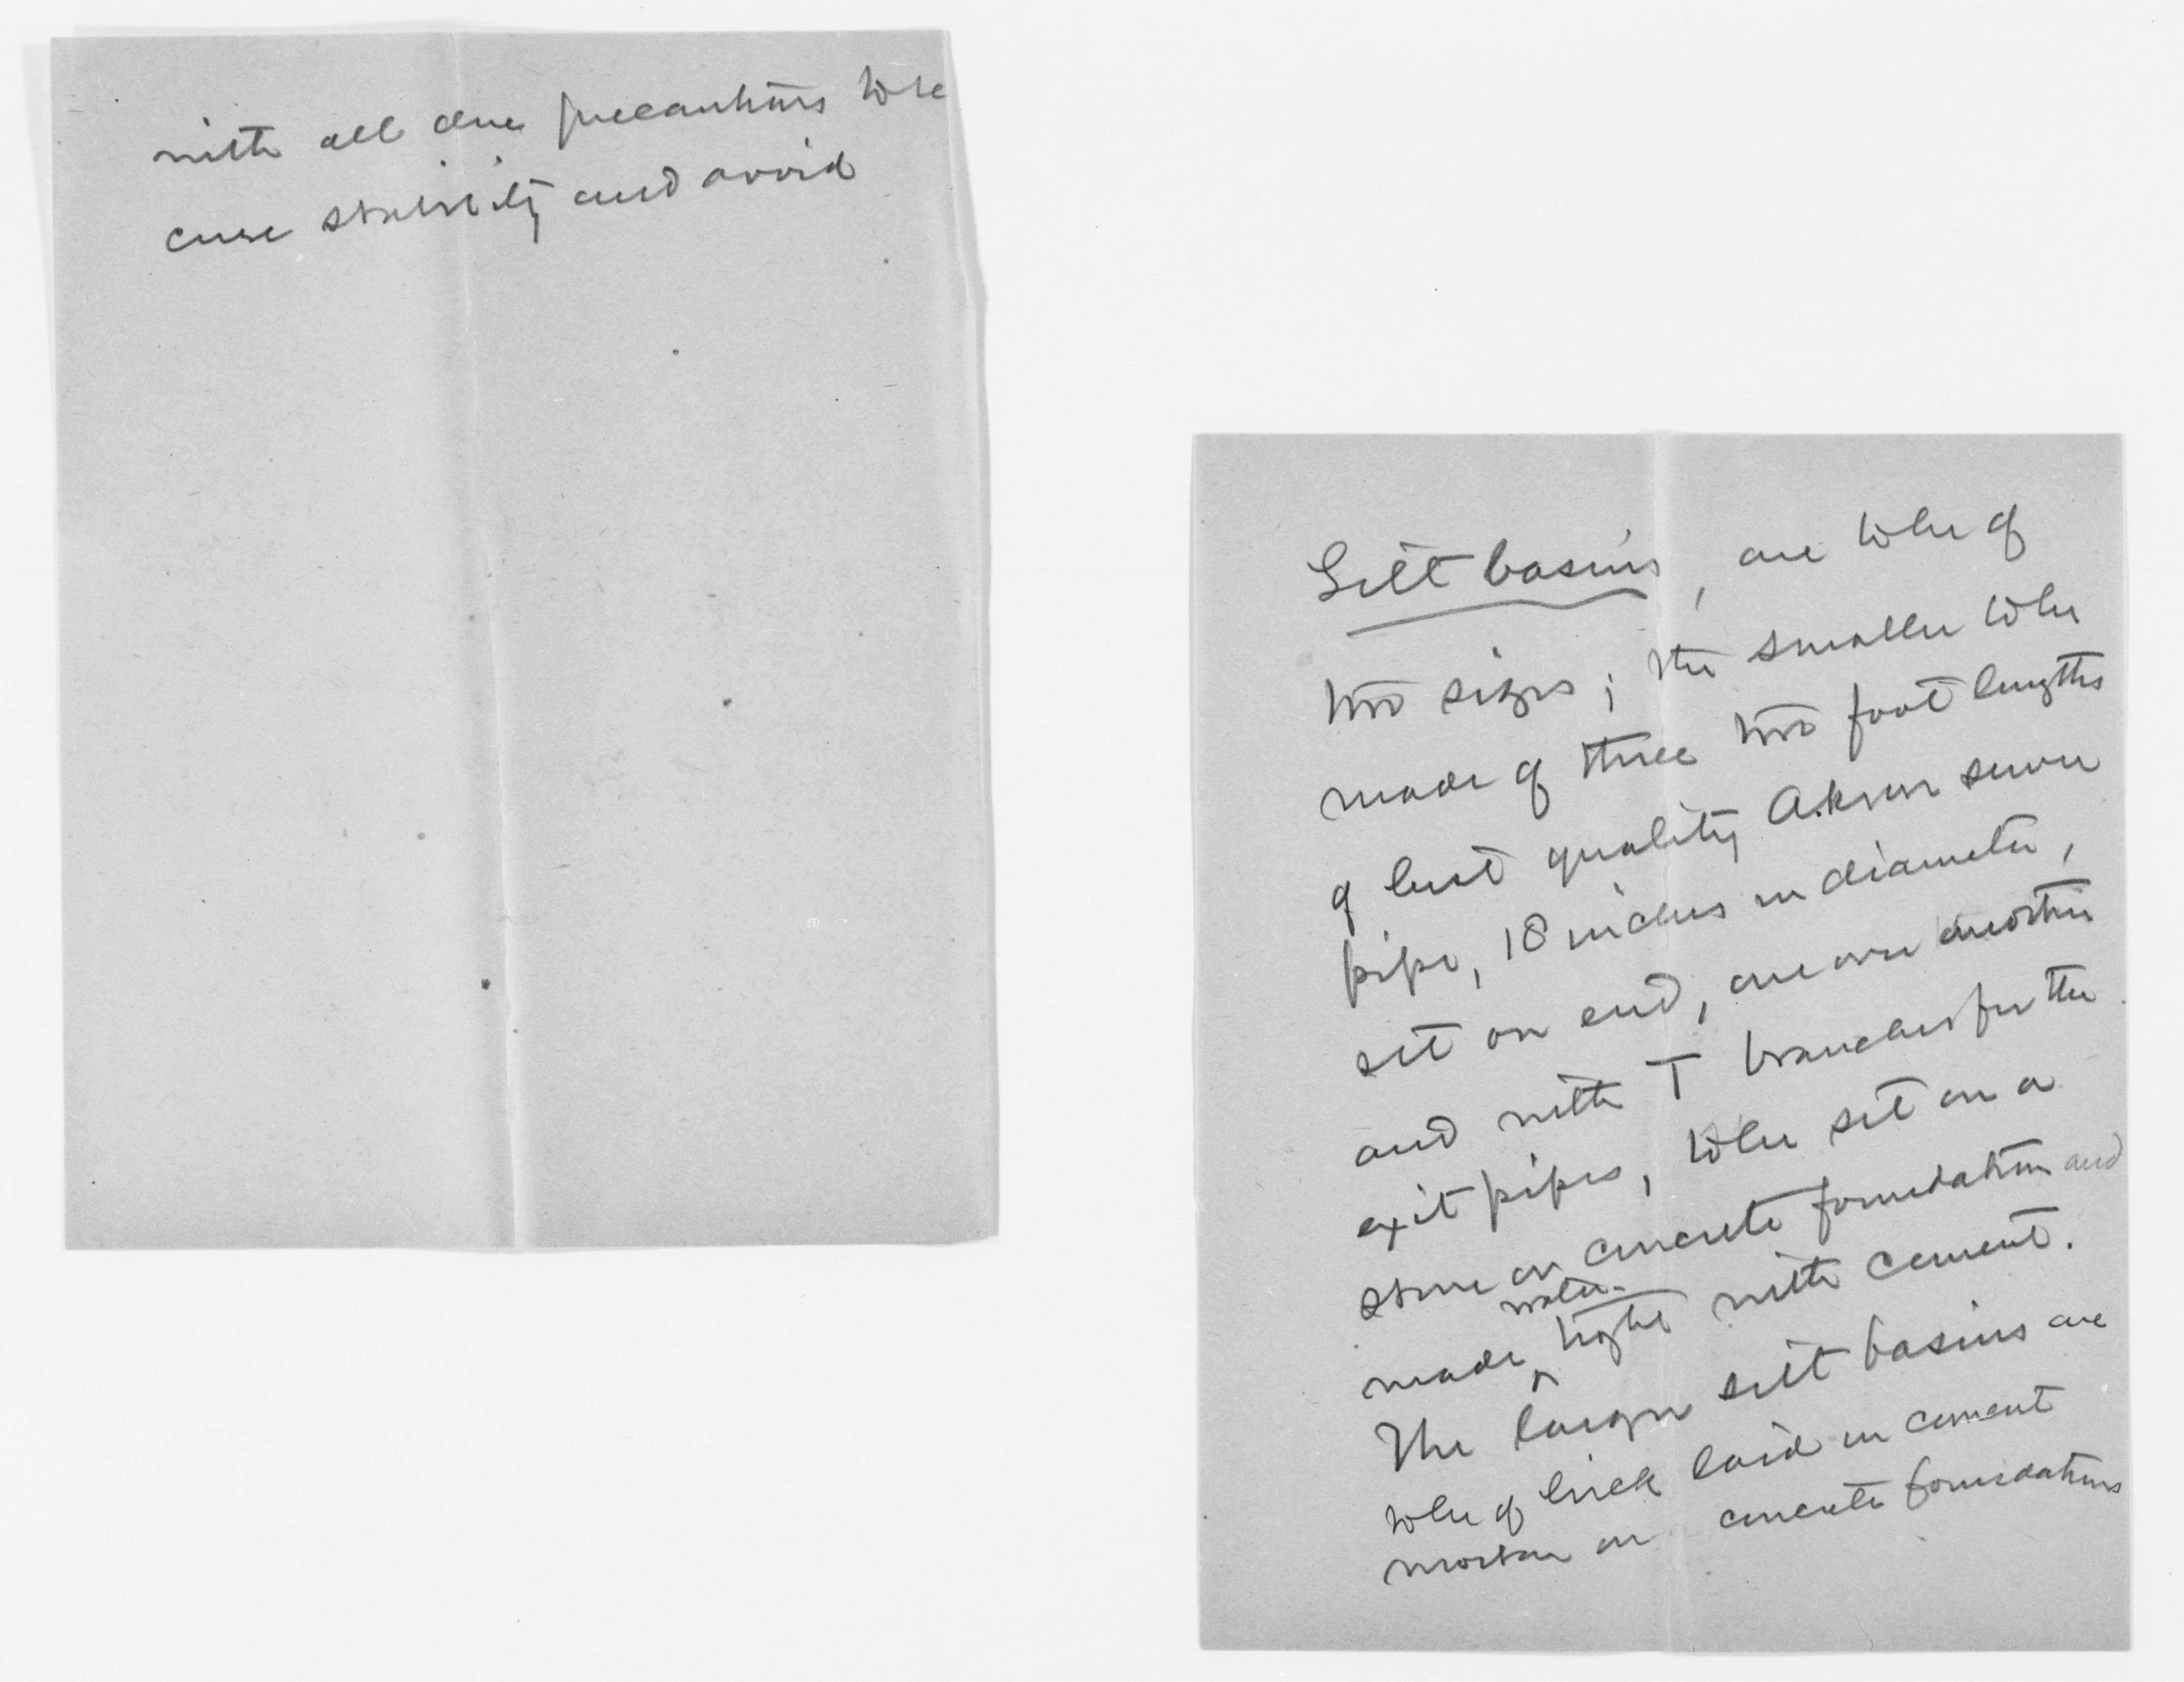 with all due precautions to se
cure stability and avoid
Silt basins, are to be of
two sizes; the smaller to be
made of three two foot lengths
of best quality Akron sewer
pipe, 18 inches in diameter,
set on end, one over another
and with T branches for the
exit pipes, to be set on a
stone or concrete foundation and
made water-tight with cement.
The larger silt basins are
to be of brick laid in cement
mortar on concrete foundations